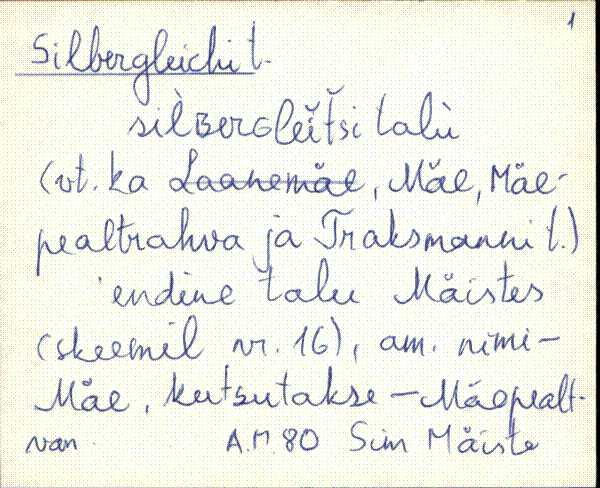 1
Silbergleichi t.
silBerGleĭt̆si talu
(vt. ka Laanemäe, Mäe, Mäe-
pealtrahva ja Traksmanni t.)
endine talu Mäistes
(skeemil nr. 16), am. nimi-
Mäe, kutsutakse - Mäepealt-
A.M. 80 Siim Mäiste